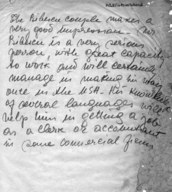 The Ribbeck couple makes a
very good impression. Mr
Ribbeck is a very serious
person, with great capacity
to work and will certainly
manage in making his way
once in the USA. His knowledge
of several languages will
help him in getting a job
as a clerk or accountant
in some commercial firm.